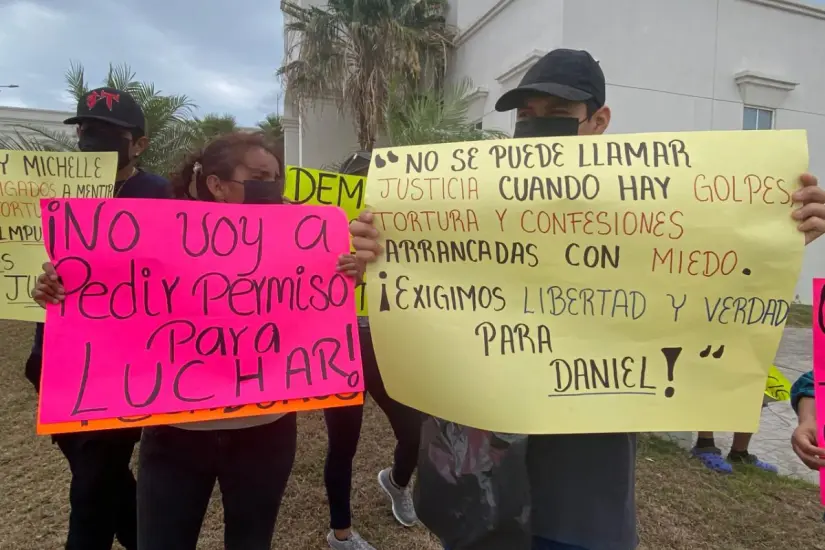 Y MICHELLE
IGADOS A MENTIR
¡NO VOY a
Pedir Permiso
Para
LUCHAR!
DEM
" NO SE PUEDE LLAMAR
JUSTICIA CUANDO HAY GOLPES,
TORTURA Y CONFESIONES
ARRANCADAS CON MIEDO.
¡EXIGIMOS LIBERTAD Y VERDAD
PARA
DANIEL! "